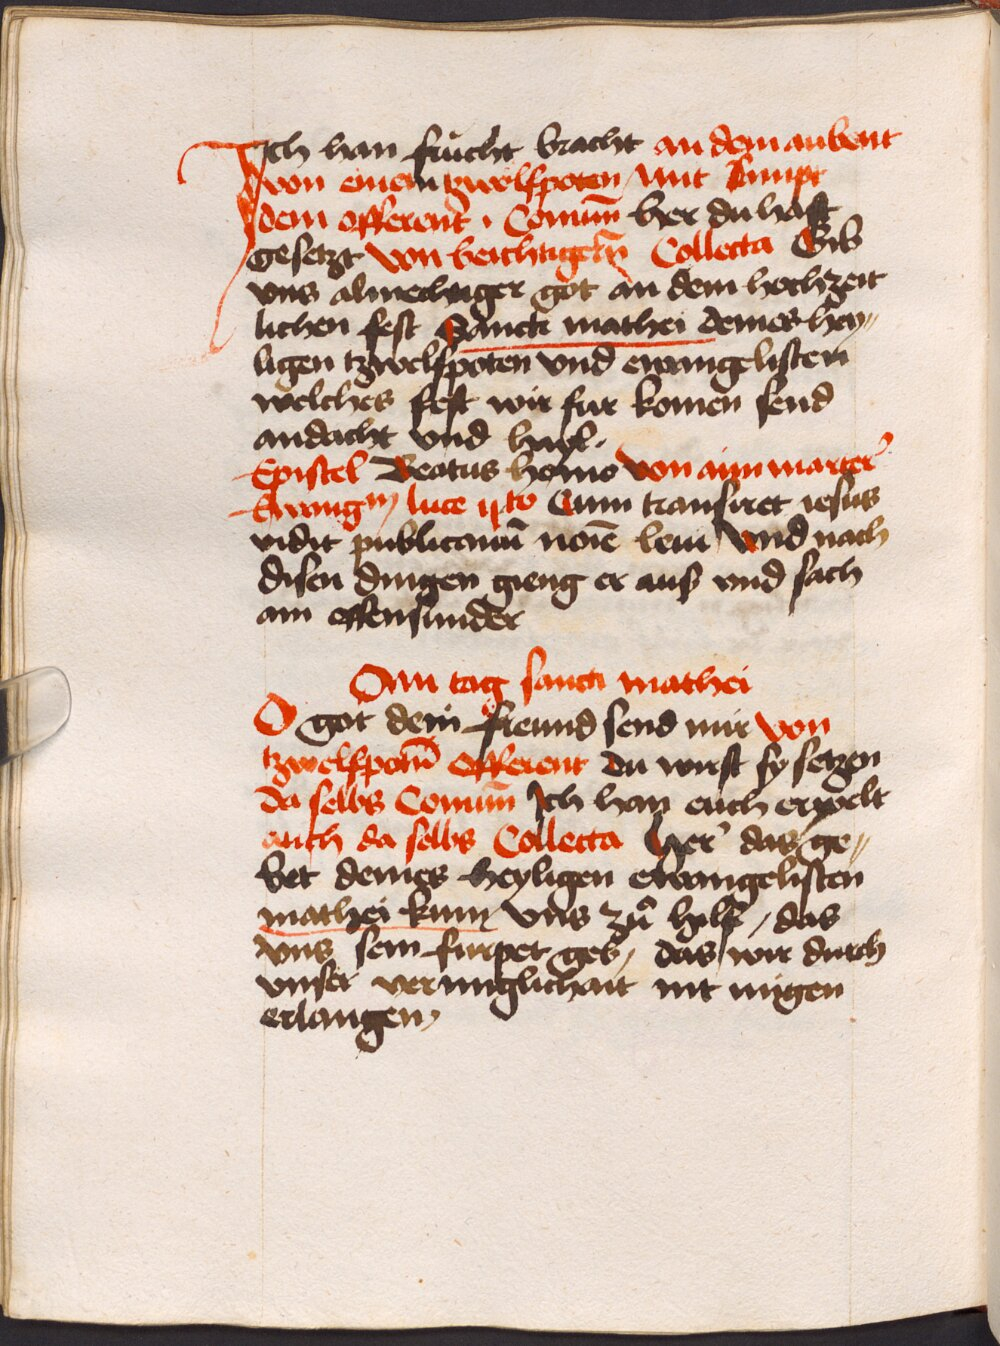 Ich han frucht bracht an dem aubent
von einem tzwelfpoten / mit sampt
dem offerent · Comūm her du hast
gesetzt von beichtigern Collecta Gib
vns almechtiger got an dem hochzeit
lichen fest Sancti mathei deines hey〃
ligen tzwelfpoten vnd ewangelisten
welches fest wir fur komen send
andacht vnd hayl ·
Epistel Beatus homo von aim marter̕
Ewangm luce ij to Cum transiret iesus
vidit publicanū noīe leui Vnd nach
disen dingen gieng er auß vnd sach
ain offensunder
Am tag sancti mathei
O got dein freund send mir von
tzwelfpotn̄ Offerent Du wirst sy setzen
da selbs Comūm Ich han euch erwelt
auch da selbs Collecta Her̕ das ge〃
bet deines heyligen ewangelisten
mathei kum vns zů hilf / das
vns sein furpet geb / das wir durch
vnser vermuglichait nit mugen
erlangen /